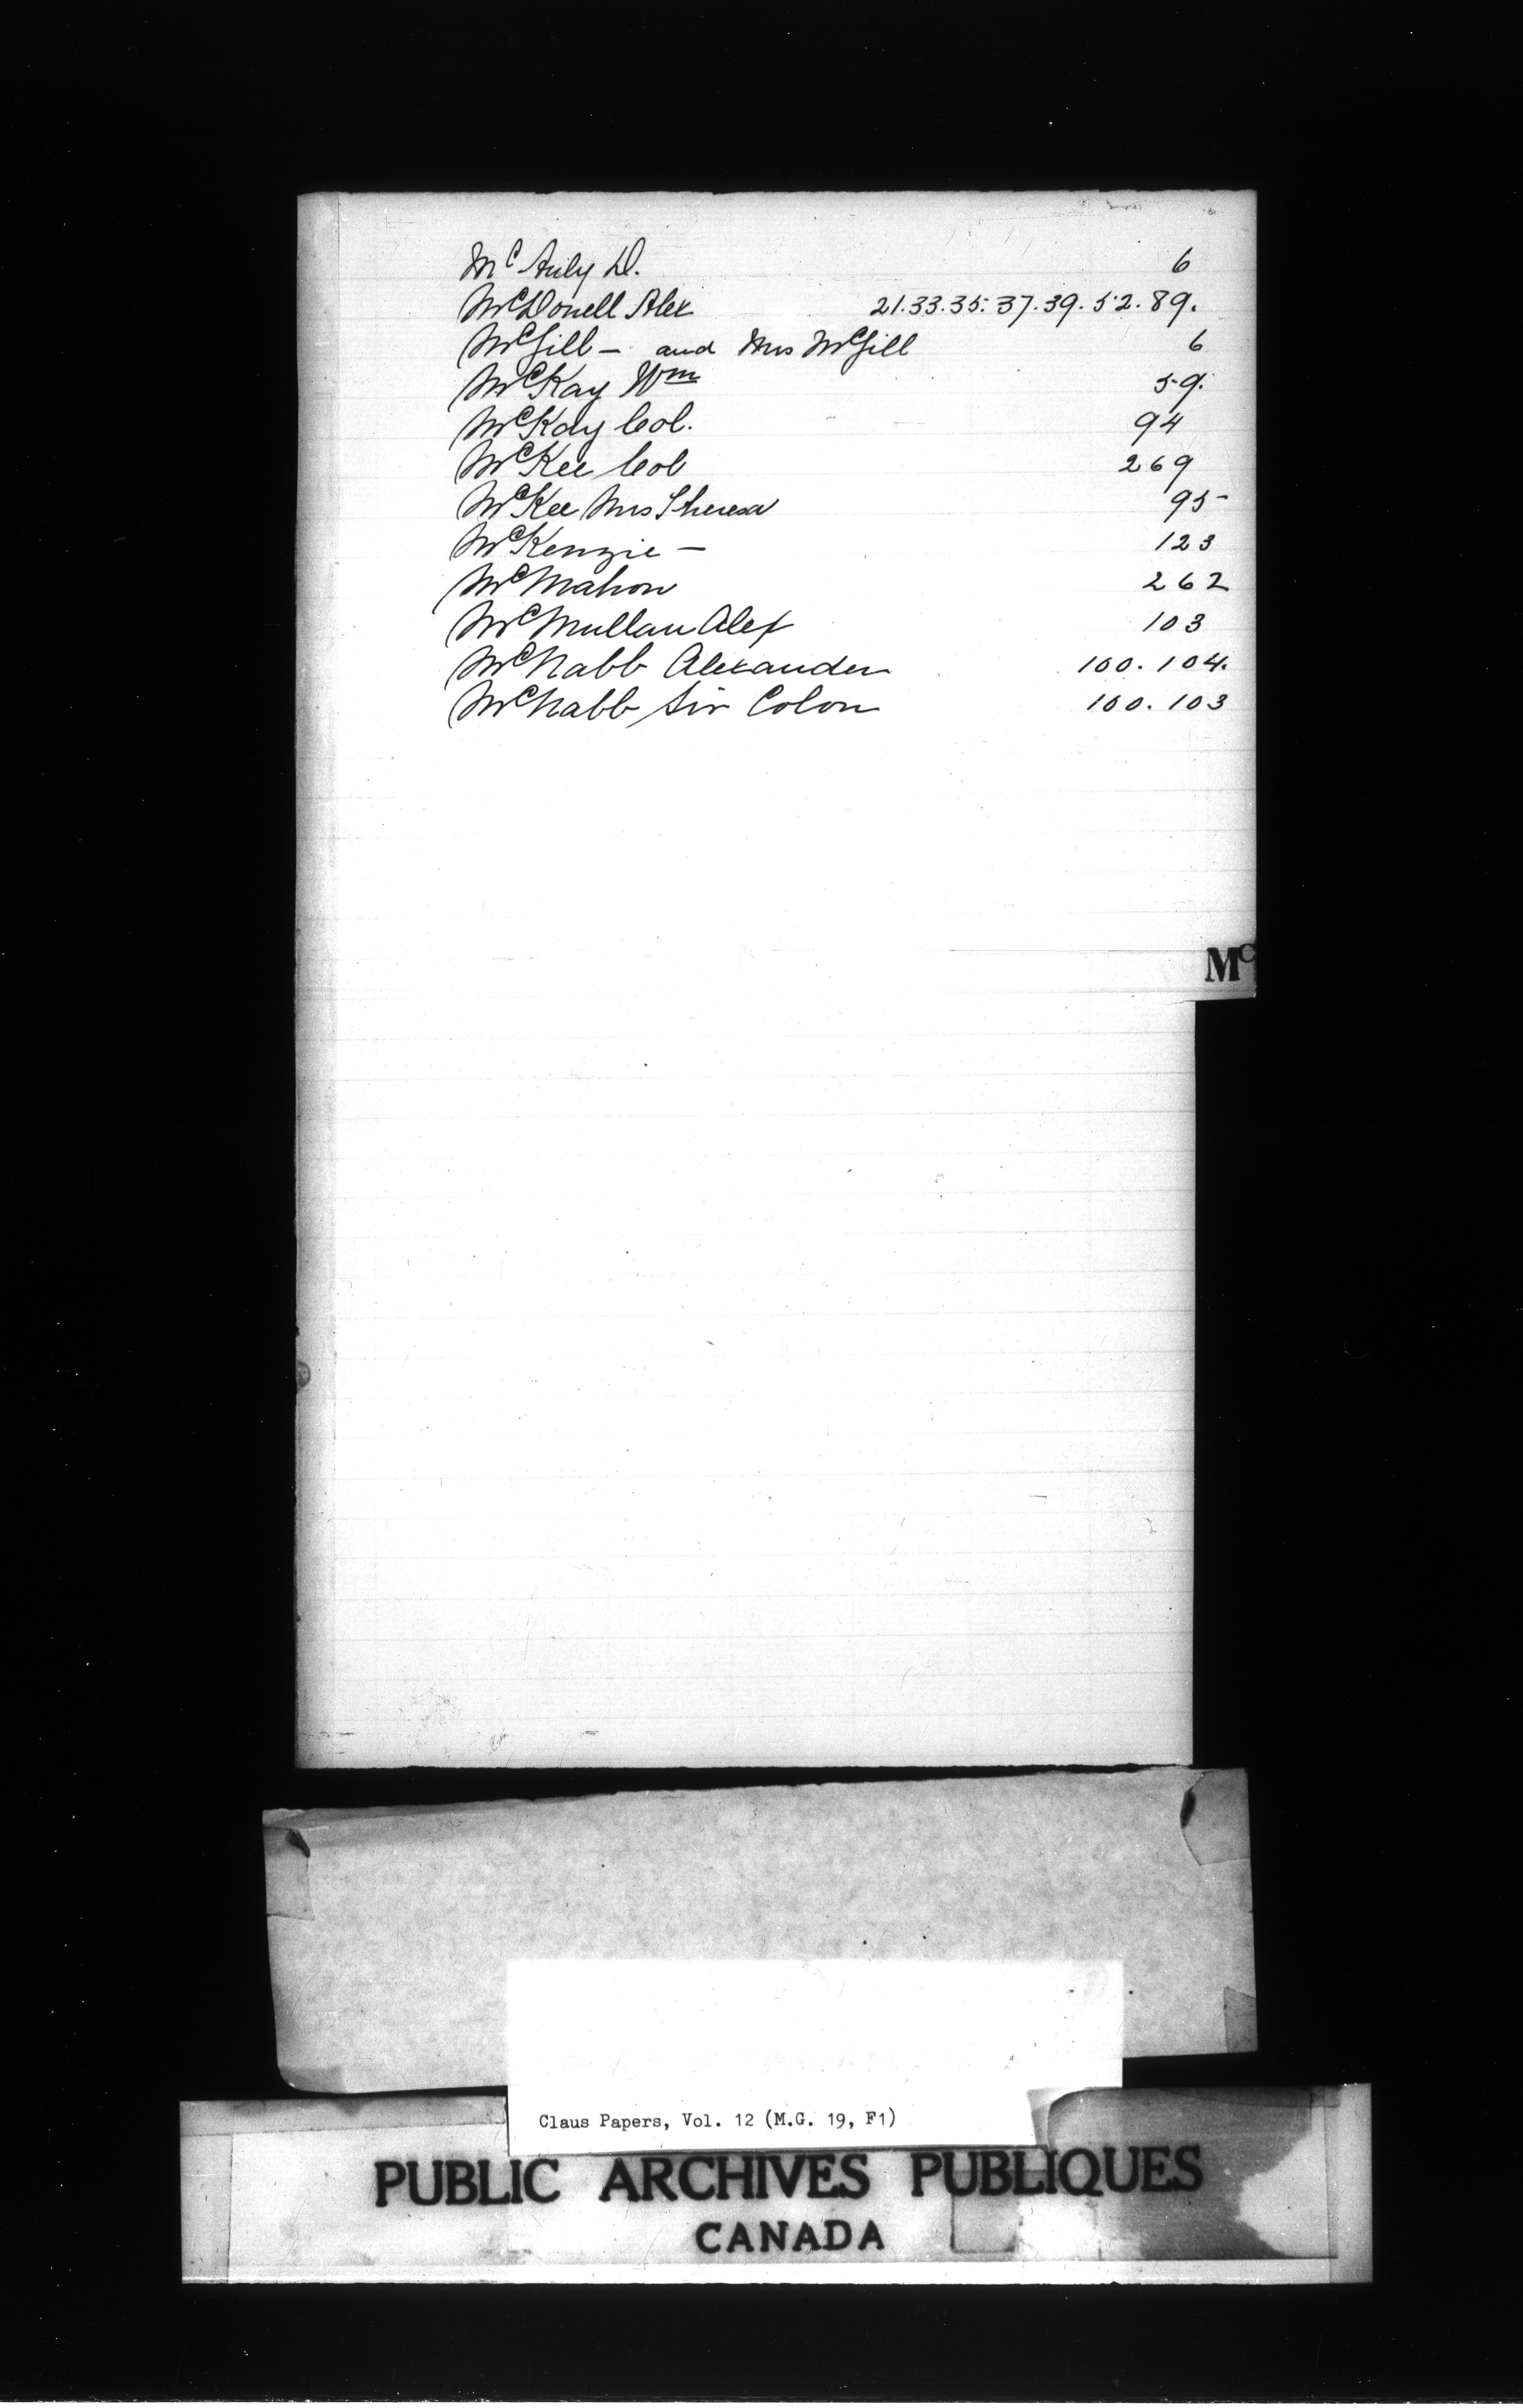 McAuly D. 6
McDonell Alex 21.33.35.37.39.52.89.
McGill — and Mrs McGill 6
McKay Wm 59.
McKay Col. 94
McKee Col 269
McKee Mrs Theresa 95
McKenzie — 123
McMahon 262
McMullan Alex 103
McNabb Alexander 100.104.
McNabb Sir Colon 100.103
Mc
Claus Papers, Vol. 12 (M.G. 19, F1)
PUBLIC ARCHIVES PUBLIQUES
CANADA